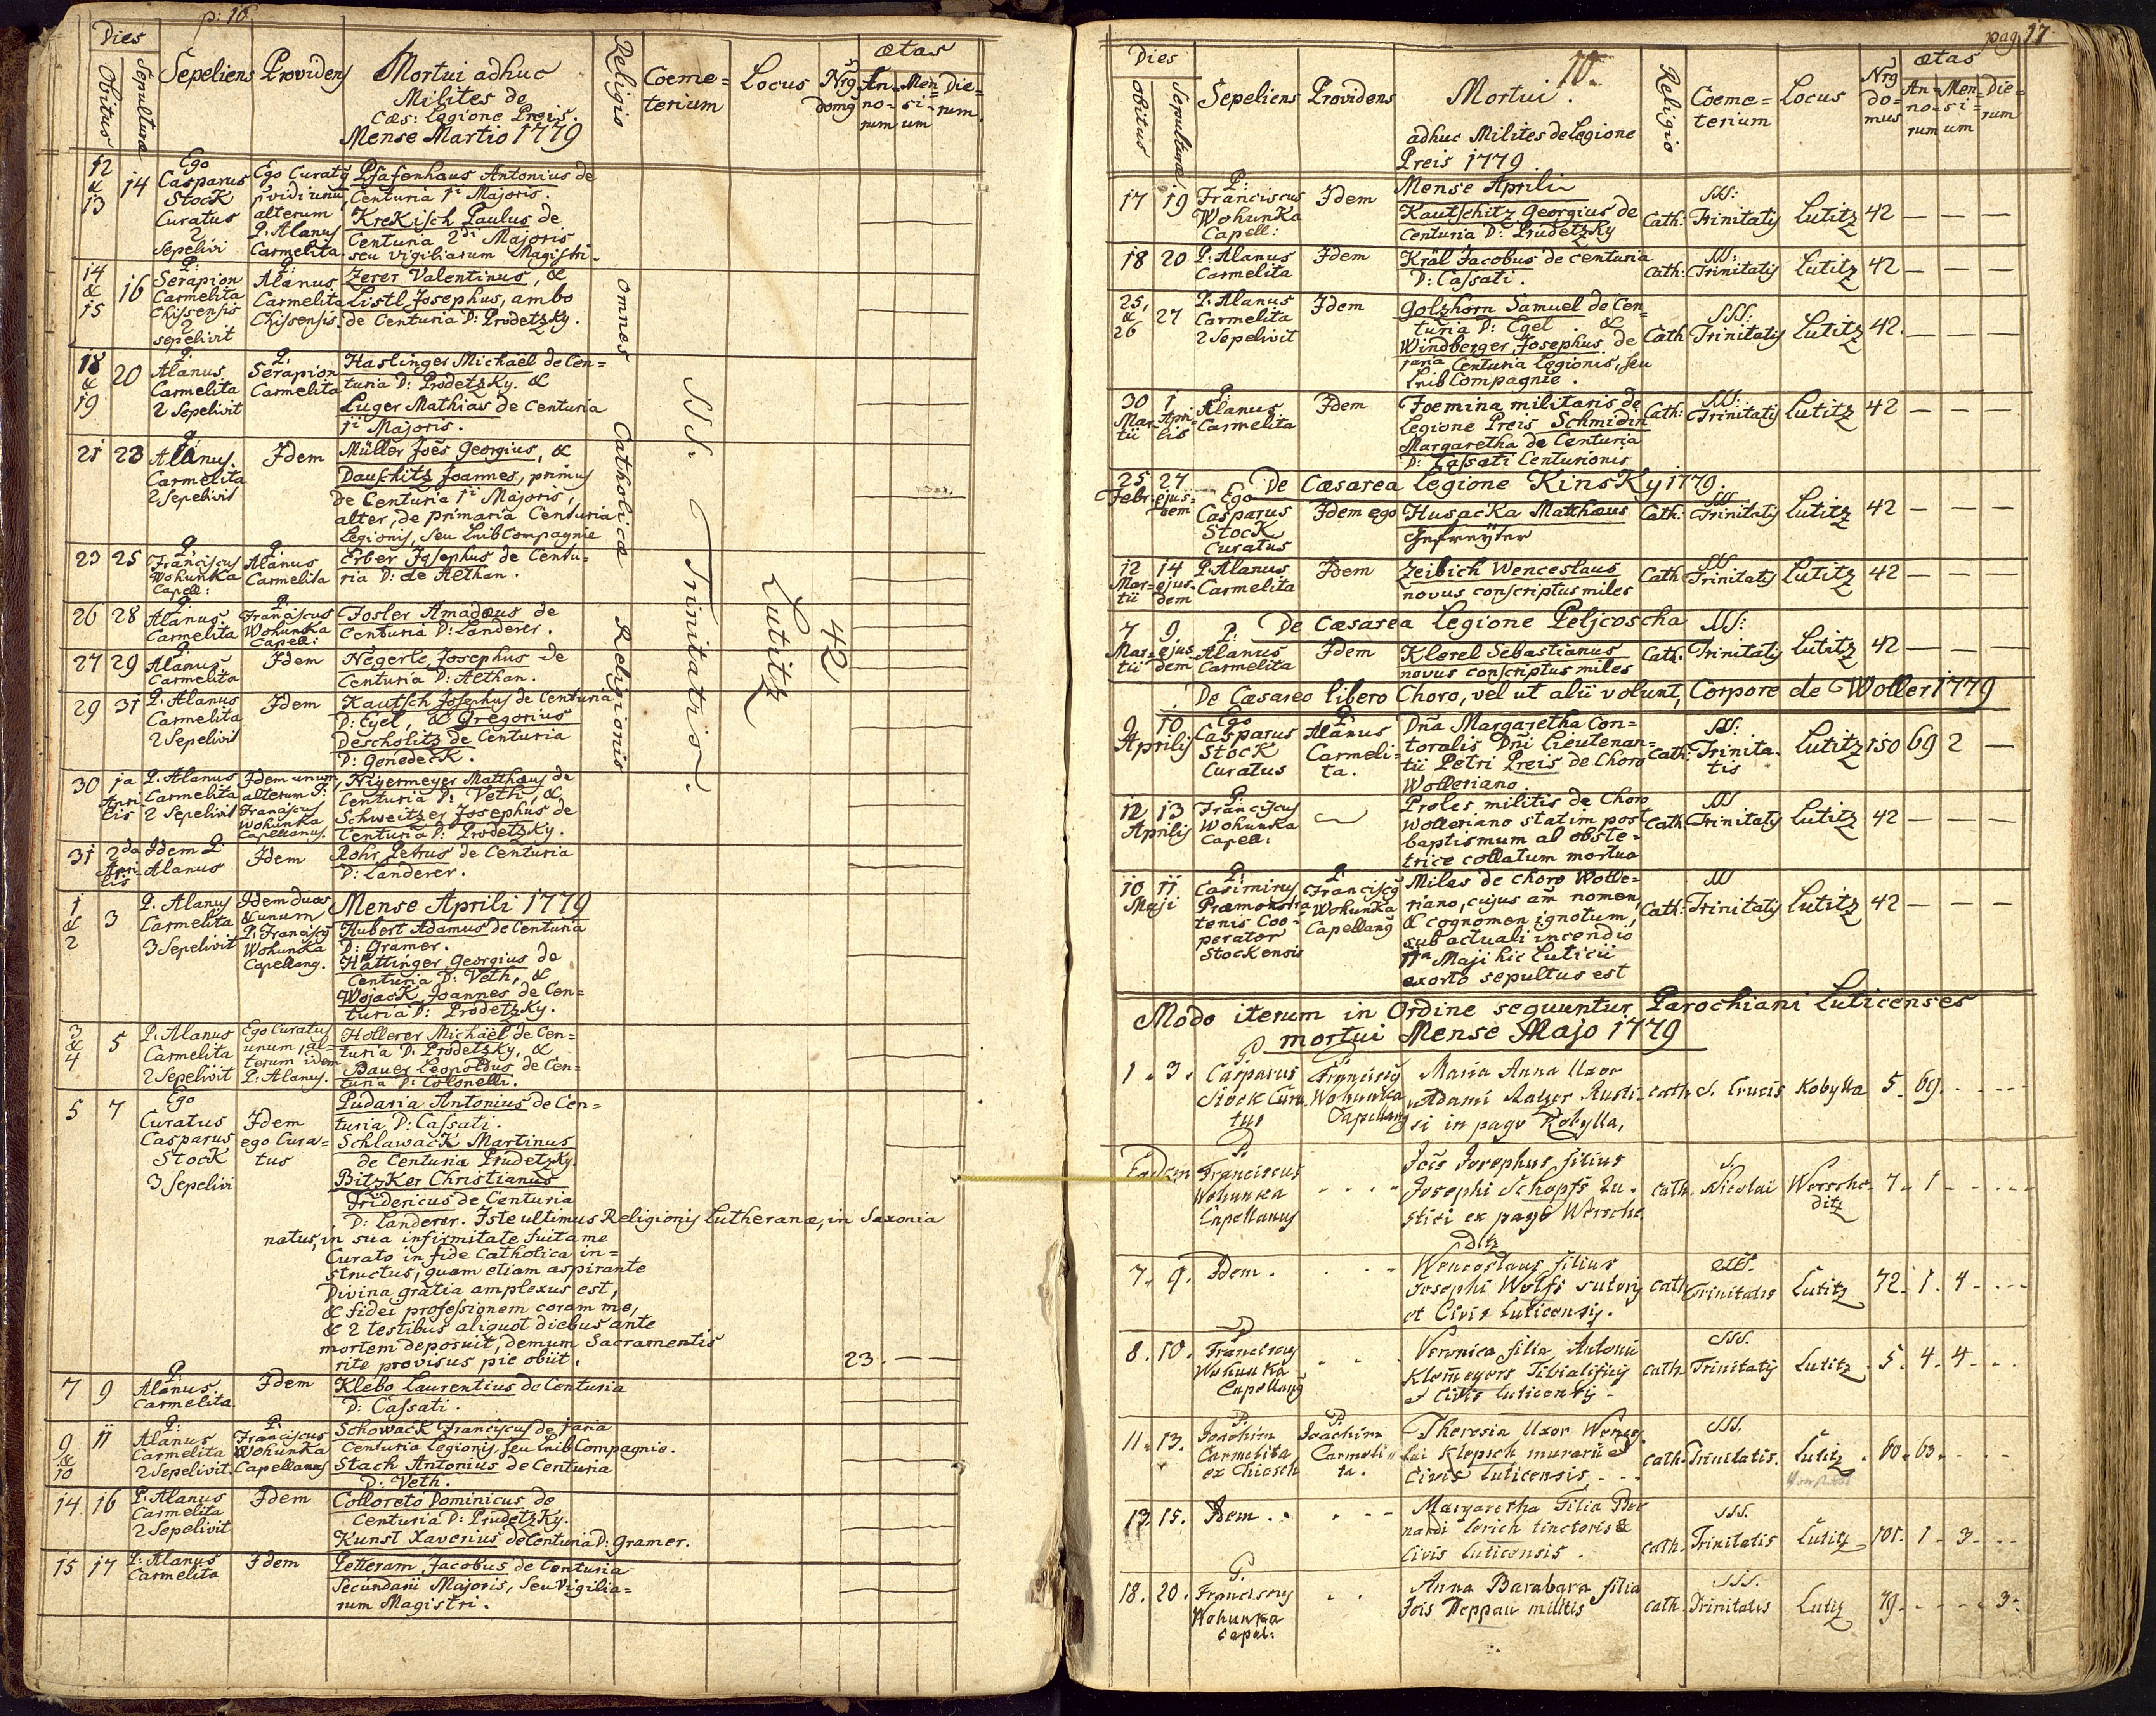 p: 16
Dies
Obitus
Sepulturæ
Sepeliens
Providens
Mortui adhuc
Milites de
Cæs: Legione Preis.
Mense Martio 1779
Religio
Coeme=
terium
Locus
Nrg
domg
ætas
An=
no=
rum
Men
si=
um
Die=
rum.
Omnes Catholicæ Religionis
SS. Trinitatis
Lutitz
42
12
&
13
14
Ego
Casparus
Stock
Curatus
2
Sepelivi
Ego Curatg
pvidi unu
alterum
P. Alanus
Carmelita
Pfafenhaus Antonius de
Centuria 1i Majoris.
KreKisch Paulus de
Centuria 2di Majoris
seu vigiliarum Magistri.
14
&
15
16
P:
Serapion
Carmelita
Chissensis
2
sepelivit
P:
Alanus
Carmelita
Chissensis.
Zerer Valentinus, &
Listl Josephus, ambo
de Centuria D: Prodetzky.
18
&
19
20
P.
Alanus
Carmelita
2 Sepelivit
P.
Serapion
Carmelita
Haslinger Michael de Cen=
turia D: Prodetzky. &
Luger Mathias de Centuria
1i Majoris.
21
23
P.
Alanus.
Carmelita
2 Sepelivit
Idem
Müller Joēs Georgius, &
Dauschitz Joannes, primus
de Centuria 1i Majoris,
alter, de primaria Centuria
Legionis, seu LeibCompagnie
23
25
P.
Franciscus
Wohunka
Capell:
P.
Alanus
Carmelita
Erber Josephus de Centu=
ria D: de Aethan.
26
28
P.
Alanus.
Carmelita
P.
Franciscus
Wohunka
Capell:
Fosler Amadæus de
Centuria D: Landerer.
27
29
P.
Alanus.
Carmelita
Idem
Negerle Josephus de
Centuria D: Aethan.
29
31
P. Alanus
Carmelita
2 Sepelivit
Idem
Kautsch Josephus de Centuria
D: Egel, & Gregorius
Descholitz de Centuria
D: Genedeck.
30
1a
Apri
lis
P. Alanus
Carmelita
2 Sepelivit
Idem unum,
alterum P:
Franciscus
Wohunka
Capellanus.
Nigermeyer Matthæus de
Centuria D: Veth, &
Schweitzer Josephus de
Centuria D: Prodetzky.
31
2da
Apri
lis
Idem P.
Alanus
Idem
Rohr Petrus de Centuria
D: Landerer.
1
&
2
3
P. Alanus
Carmelita
3 Sepelivit
Idem duos
& unum
P: Franciscg
Wohunka
Capellang.
Mense Aprili 1779
Hubert Adamus de Centuria
D: Gramer.
Hättinger Georgius de
Centuria D: Veth, &
WojacK Joannes de Cen=
turia D: Prodetzky.
3
&
4
5
P. Alanus
Carmelita
2 Sepelivit
Ego Curatus
unum, al=
terum idem
P: Alanus.
Hollerer Michael de Cen=
turia D. Prodetzky, &
Bauer Leopoldus de Cen=
turia D: Collonelli.
5
7
Ego
Curatus
Casparus
Stock
3 Sepelivi
Idem
ego Cura=
tus
Pudaria Antonius de Cen=
turia D: Cassati.
SchlawacK Martinus
de Centuria Prudetzky.
BitzKer Christianus
Fridericus de Centuria
D: Landerer. Iste ultimus Religionis Lutheranæ, in Saxonia
natus, in sua infirmitate fuit a me
Curato in fide Catholica in=
structus, quam etiam aspirante
Divina gratia amplexus est,
& fidei professionem coram me,
& 2 testibus aliquot diebus ante
mortem deposuit, demum Sacramentis
rite provisus pie obiit.
23. — —
7
9
P.
Alanus.
Carmelita.
Idem
Klebo Laurentius de Centuria
D: Cassati.
9
&
10
11
P:
Alanus
Carmelita
2 Sepelivit.
P.
Franciscus
Wohunka
Capellanus
SchowacK Franciscus de 1aria
Centuria Legionis, seu LeibCompagnie.
Stach Antonius de Centuria
D: Veth.
14.
16
P: Alanus
Carmelita
2 Sepelivit
Idem
Colloreto Dominicus de
Centuria D: Prudetzky.
Kunst Xaverius de Centuria D: Gramer.
15
17
P: Alanus
Carmelita
Idem
Petteram Jacobus de Centuria
Secundarii Majoris, seu Vigilia=
rum Magistri.
pag. 17
Dies
Obitus
Sepulturæ
Sepeliens
Providens
10.
Mortui.
adhuc Milites de Legione
Preis 1779
Religio
Coeme=
terium
Locus
Nrg
do=
mus
ætas
An=
no=
rum
Men=
si=
um
Die=
rum
17
19
P:
Franciscus
Wohunka
Capell:
Idem
Mense Aprili
Kautschitz Georgius de
Centuria D: Prudetzky
Cath:
SSS:
Trinitatis
Lutitz
42 — — —
18
20
P: Alanus
Carmelita
Idem
Kräl Jacobus de Centuria
D: Cassati.
Cath:
SSS:
Trinitatis
Lutitz
42 — — —
25,
&
26
27
P. Alanus
Carmelita
2 Sepelivit
Idem
Golzhorn Samuel de Cen=
turia D: Egel. &
Windberger Josephus de
1aria Centuria Legionis, seu
Leib Compagnie.
Cath
SSS:
Trinitatis
Lutitz
42. — — —
30
Mar=
tii
1
Apri=
lis
P.
Alanus
Carmelita
Idem
Foemina militaris de
Legione Preis Schmidin
Margaretha de Centuria
D: Cassati Centurionis
Cath:
SSS:
Trinitatis
Lutitz
42 — — —
De Cæsarea Legione KinsKy 1779.
25
Febr:
27
ejus=
dem
Ego
Casparus
Stock
Curatus
Idem ego
HusacKa Matthæus
Gefreyter
Cath:
SSS
Trinitatis
Lutitz
42 — — —
12
Mar=
tii
14
ejus=
dem
P. Alanus
Carmelita
Idem
Zeibich Wenceslaus
novus conscriptus miles
Cath
SSS
Trinitatis
Lutitz
42 — — —
De Cæsarea Legione Peljcoscha
7
Mar=
tii
9
ejus
dem
P:
Alanus
Carmelita
Idem
Klerel Sebastianus
novus conscriptus miles
Cath:
SSS:
Trinitatis
Lutitz
42 — — —
De Cæsareo libero Choro, vel ut alii volunt, Corpore de Woller 1779
9
Aprilis
10
Ego
Casparus
Stock
Curatus
P.
Alanus
Carmeli=
ta.
Dña Margaretha Con=
toralis Dñi Lieutenan=
tii Petri Preis de Choro
Wolleriano.
Cath:
SSS:
Trinita.
tis
Lutitz
150 69 2 —
12
Aprilis
13
P.
Franciscus
Wohunka
Capell:
Proles militis de Choro
Wolleriano statim post
baptismum ab obste=
trice collatum mortua
Cath:
SSS
Trinitatis
Lutitz
42 — — —
10
Maji
11
P.
Casimirus
Præmonstra
tenis Coo=
perator
Stockensis
P.
Franciscg
Wohunka
Capellang
Miles de Choro Wolle=
riano, cujus añ nomen,
& cognomen ignotum,
sub actuali incendio
11a Maji hic Luticii
exorto sepultus est
Cath:
SSS
Trinitatis
Lutitz
42 — — —
Modo iterum in Ordine sequuntur Parochiani Luticenses
mortui Mense Majo 1779
1.
3.
P.
Casparus
Stock Cura
tus
P.
Franciscg
Wohunka
Capellang
Maria Anna Uxor
Adami Rayer Rusti=
ci in pago Kobylla,
cath.
S. Crucis
Kobylla
5. 69.
Eadem
P.
Franciscus
Wohunka
Capellanus
Jois Josephus filius
Josephi Schopfs Ru.
stici ex pago Wersche
ditz
cath.
S.
Nicolai
Wersche=
ditz
7. 1
7.
9.
Idem.
Wenceslaus filius
Josephi Wolfs sutoris
et Civis Luticensis.
cath
Trinitatis
Lutitz
72. 1. 4.
8.
10.
P
Franciscus
Wohunka
Capellang
Veronica filia Antonii
Klemeyers Tibialificis
et Civis Luticensis
cath.
SSS.
Trinitatis
Lutitz
5. 4. 4.
11.
13.
P.
Joachim
Carmelita
ex Chiesch
P.
Joachim
Carmeli=
ta.
Theresia Uxor Wences
lai Klepsch murarii et
Civis Luticensis
cath.
SSS.
Trinitatis.
Lutitz.
60. 63.
13.
15.
Idem..
Margaretha Filia Ber
nardi Lerich tinctoris &
Civis Luticensis.
cath.
SSS.
Trinitatis
Lutitz
101. 1. 3.
18.
20.
P.
Franciscus
Wohunka
Capel:
Anna Barabara filia
Jois Deppau militis
cath.
SSS.
Trinitatis
Lutitz
79. 3.